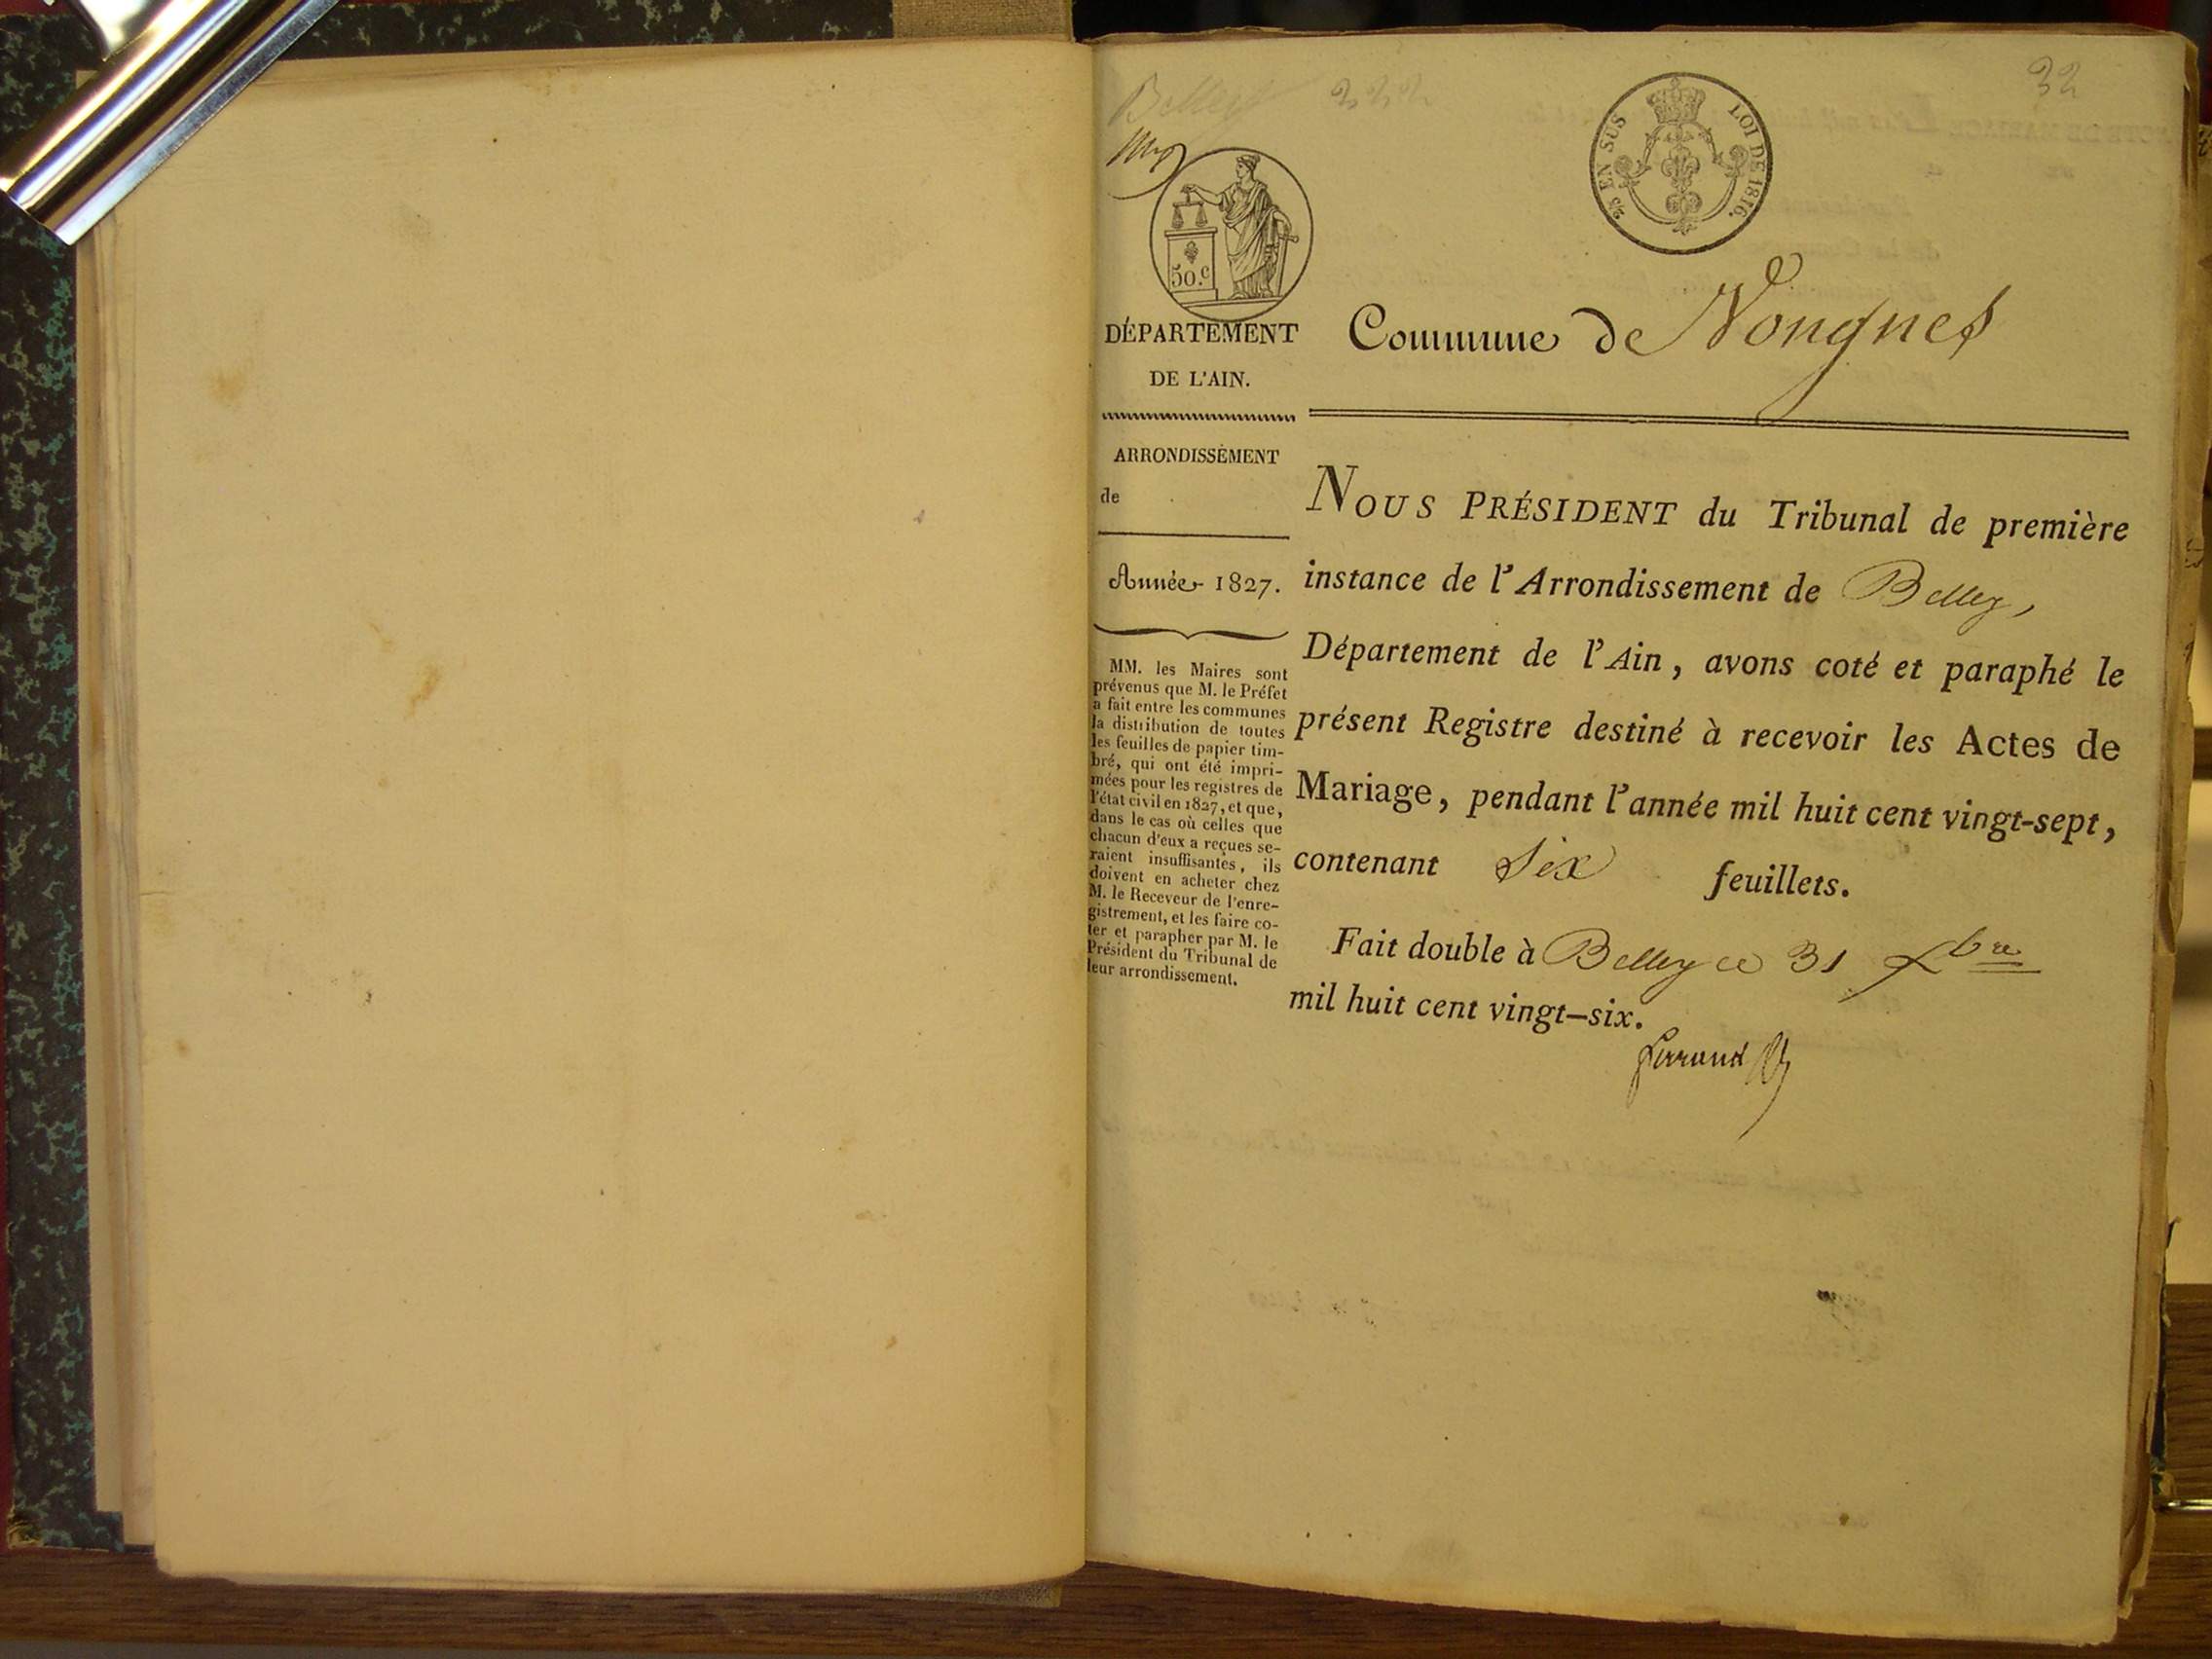 Belley 222
32
2/5 EN SUS LOI DE 1816.
50.c
DÉPARTEMENT
DE L'AIN.
Commune de Nongnes
ARRONDISSEMENT
de
Année 1827.
MM. les Maires sont
prévenus que M. le Préfet
a fait entre les communes
la distribution de toutes
les feuilles de papier tim-
bré, qui ont été impri-
mées pour les registres de
l'état civil en 1827, et que,
dans le cas où celles que
chacun d'eux a reçues se-
raient insuffisantes, ils
doivent en acheter chez
M. le Receveur de l'enre-
gistrement, et les faire co-
ter et parapher par M. le
Président du Tribunal de
leur arrondissement.
NOUS PRÉSIDENT du Tribunal de première
instance de l'Arrondissement de Belley,
Département de l'Ain, avons coté et paraphé le
présent Registre destiné à recevoir les Actes de
Mariage, pendant l'année mil huit cent vingt-sept,
contenant Six feuillets.
Fait double à Belley ce 31 Xbre
mil huit cent vingt-six.